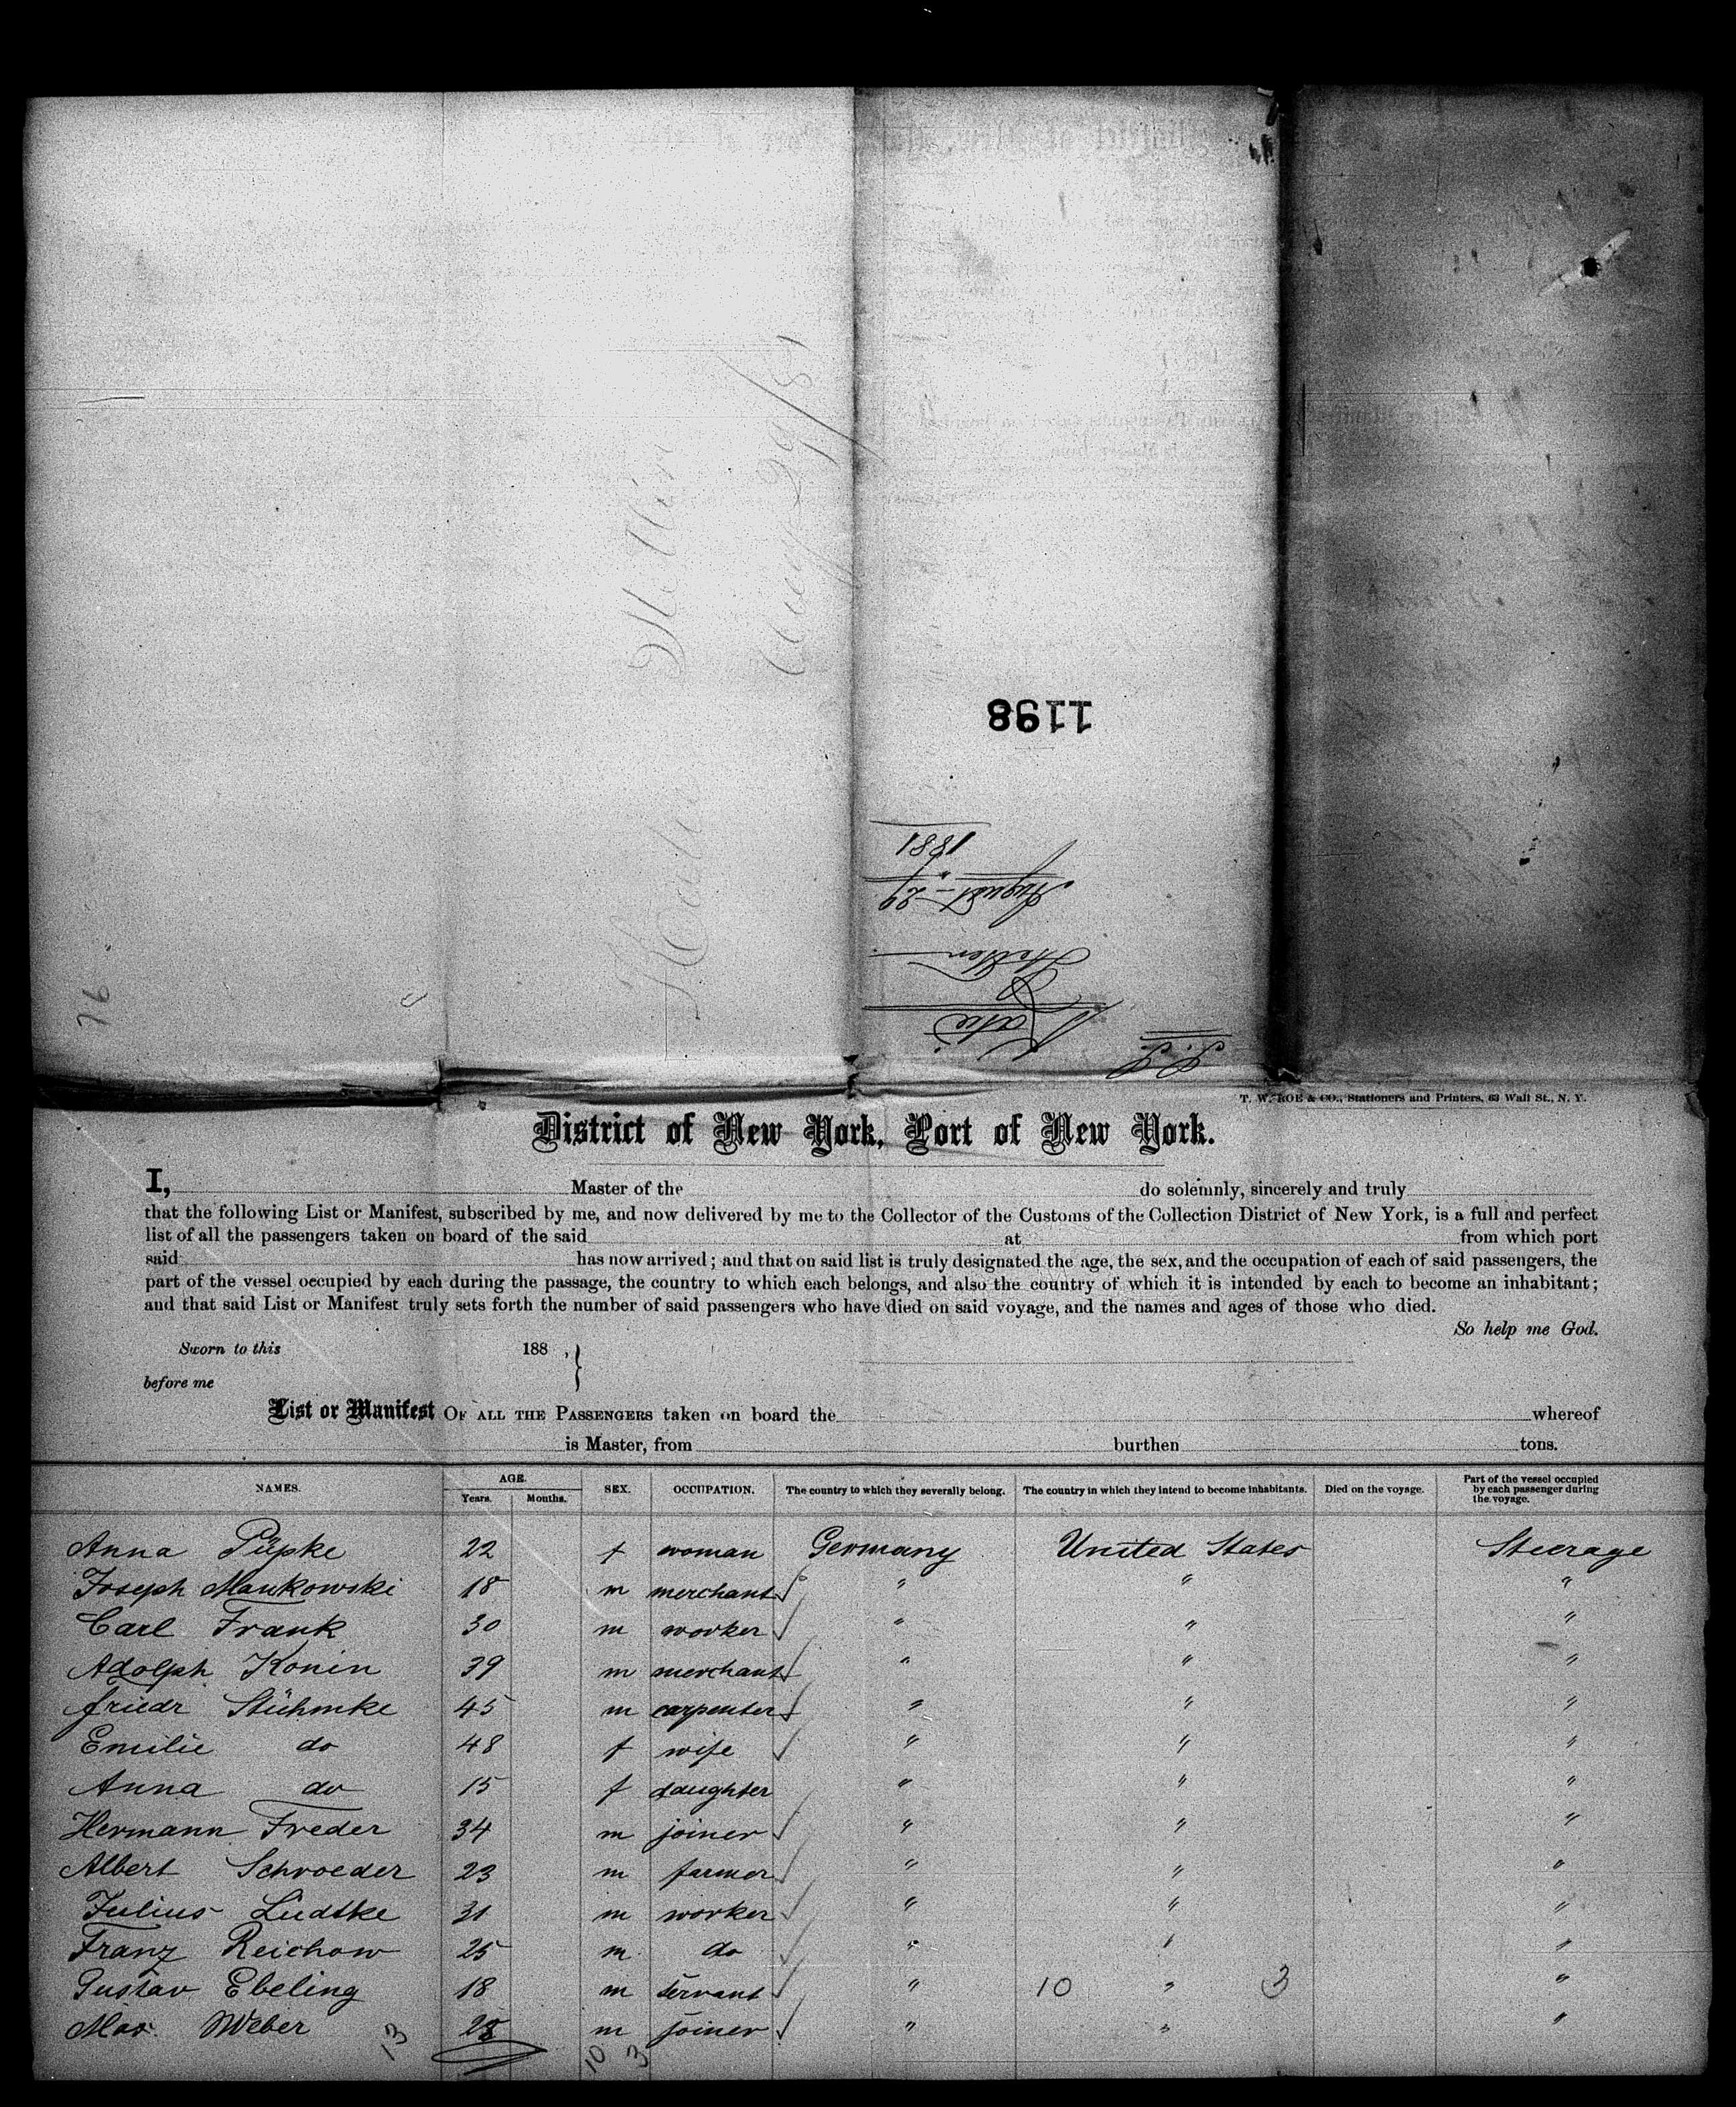 Stettin
Aug 29/81
Katie
1198
1881
August - 29
Stettin
Katie
76
T. W. ROE & CO., Stationers and Printers, 63 Wall St., N. Y.
District of New York, Port of New York.
I, Master of the do solemnly, sincerely and truly
that the following List or Manifest, subscribed by me, and now delivered by me to the Collector of the Customs of the Collection District of New York, is a full and perfect
list of all the passengers taken on board of the said at from which port
said has now arrived; and that on said list is truly designated the age, the sex, and the occupation of each of said passengers, the
part of the vessel occupied by each during the passage, the country to which each belongs, and also the country of which it is intended by each to become an inhabitant;
and that said List or Manifest truly sets forth the number of said passengers who have died on said voyage, and the names and ages of those who died.
So help me God.
Sworn to this 188 ,
before me
List or Manifest OF ALL THE PASSENGERS taken on board the whereof
is Master, from burthen tons.
NAMES. AGE. Years. Months. SEX. OCCUPATION. The country to which they severally belong. The country in which they intend to become inhabitants. Died on the voyage. Part of the vessel occupied by each passenger during the voyage.
Anna Püpke 22 f woman Germany United States Steerage
Joseph Mankowski 18 m merchant " " "
Carl Frank 30 m worker " " "
Adolph Konin 39 m merchant " " "
Friedr Stühmke 45 m carpenter " " "
Emilie do 48 f wife " " "
Anna do 15 f daughter " " "
Hermann Freder 34 m joiner " " "
Albert Schroeder 23 m farmer " " "
Julius Lüdtke 31 m worker " " "
Franz Reichow 25 m do " " "
Gustav Ebeling 18 m servant " 10 " 3 "
Max Weber 28 m joiner " " "
13 10 3